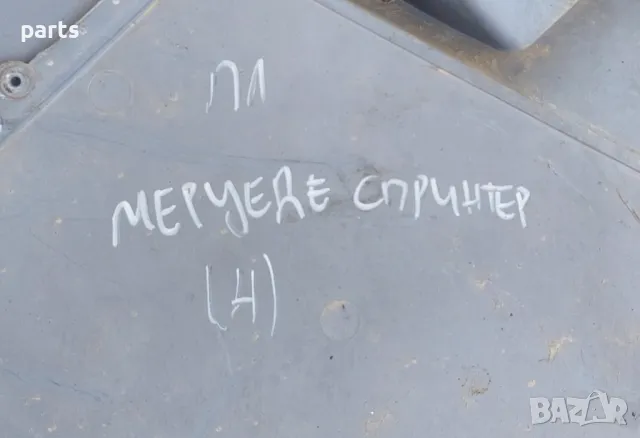 parts
ПЛ
МЕРЦЕДЕ СПРИНТЕР
(Н)
BAZAR